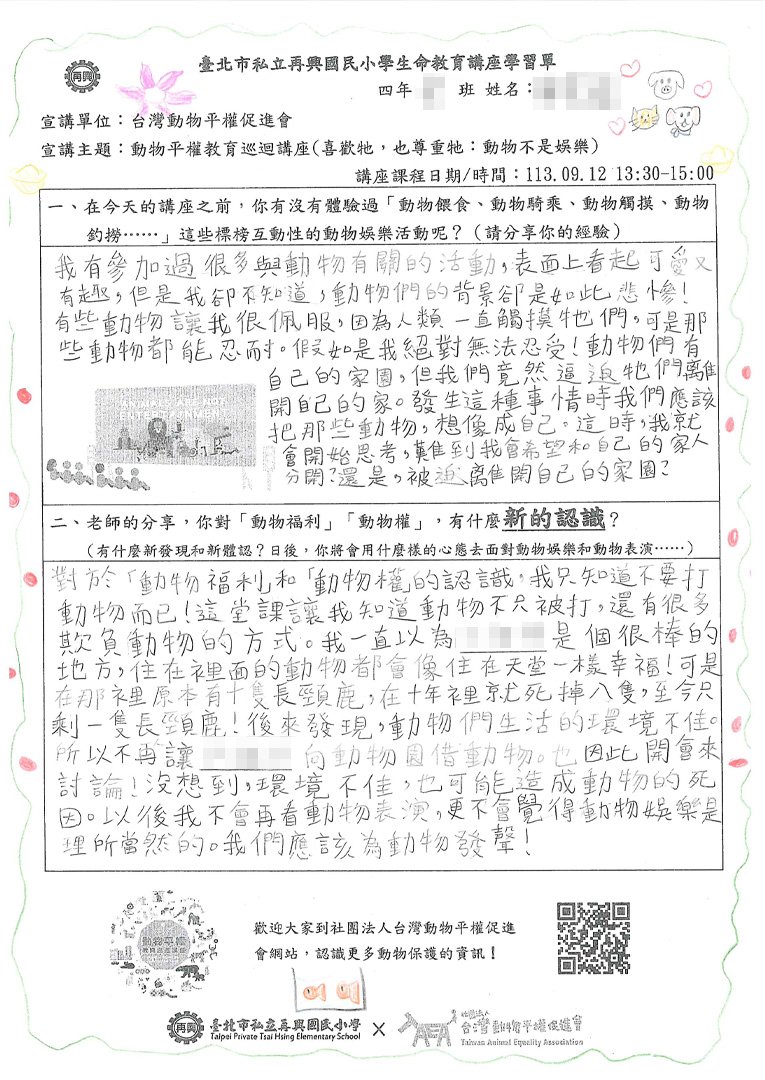 臺北市私立再興國民小學生命教育講座學習單
四年 班 姓名：
宣講單位：台灣動物平權促進會
宣講主題：動物平權教育巡迴講座(喜歡牠，也尊重牠：動物不是娛樂)
講座課程日期/時間：113.09.12 13:30-15:00
一、在今天的講座之前，你有沒有體驗過「動物餵食、動物騎乘、動物觸摸、動物
釣撈……」這些標榜互動性的動物娛樂活動呢？（請分享你的經驗）
我有參加過很多與動物有關的活動，表面上看起可愛又
有趣，但是我卻不知道，動物們的背景卻是如此悲慘！
有些動物讓我很佩服，因為人類一直觸摸牠們，可是那
些動物都能忍耐。假如是我絕對無法忍受！動物們有
自己的家園，但我們竟然逼迫牠們離
開自己的家。發生這種事情時我們應該
把那些動物，想像成自己。這時，我就
會開始思考，難到我會希望和自己的家人
分開？還是，被迫離開自己的家園？
ANIMALS ARE NOT
ENTERTAINMENT
二、老師的分享，你對「動物福利」「動物權」，有什麼新的認識？
（有什麼新發現和新體認？日後，你將會用什麼樣的心態去面對動物娛樂和動物表演……）
對於「動物福利」和「動物權」的認識，我只知道不要打
動物而已！這堂課讓我知道動物不只被打，還有很多
欺負動物的方式。我一直以為 是個很棒的
地方，住在裡面的動物都會像住在天堂一樣幸福！可是
在那裡原本有十隻長頸鹿，在十年裡就死掉八隻，至今只
剩一隻長頸鹿！後來發現，動物們生活的環境不佳。
所以不再讓 向動物園借動物。也因此開會來
討論！沒想到，環境不佳，也可能造成動物的死
因。以後我不會再看動物表演，更不會覺得動物娛樂是
理所當然的。我們應該為動物發聲！
動物平權
教育巡迴講座
歡迎大家到社團法人台灣動物平權促進
會網站，認識更多動物保護的資訊！
再興 臺北市私立再興國民小學
Taipei Private Tsai Hsing Elementary School
×
社團法人
台灣動物平權促進會
Taiwan Animal Equality Association